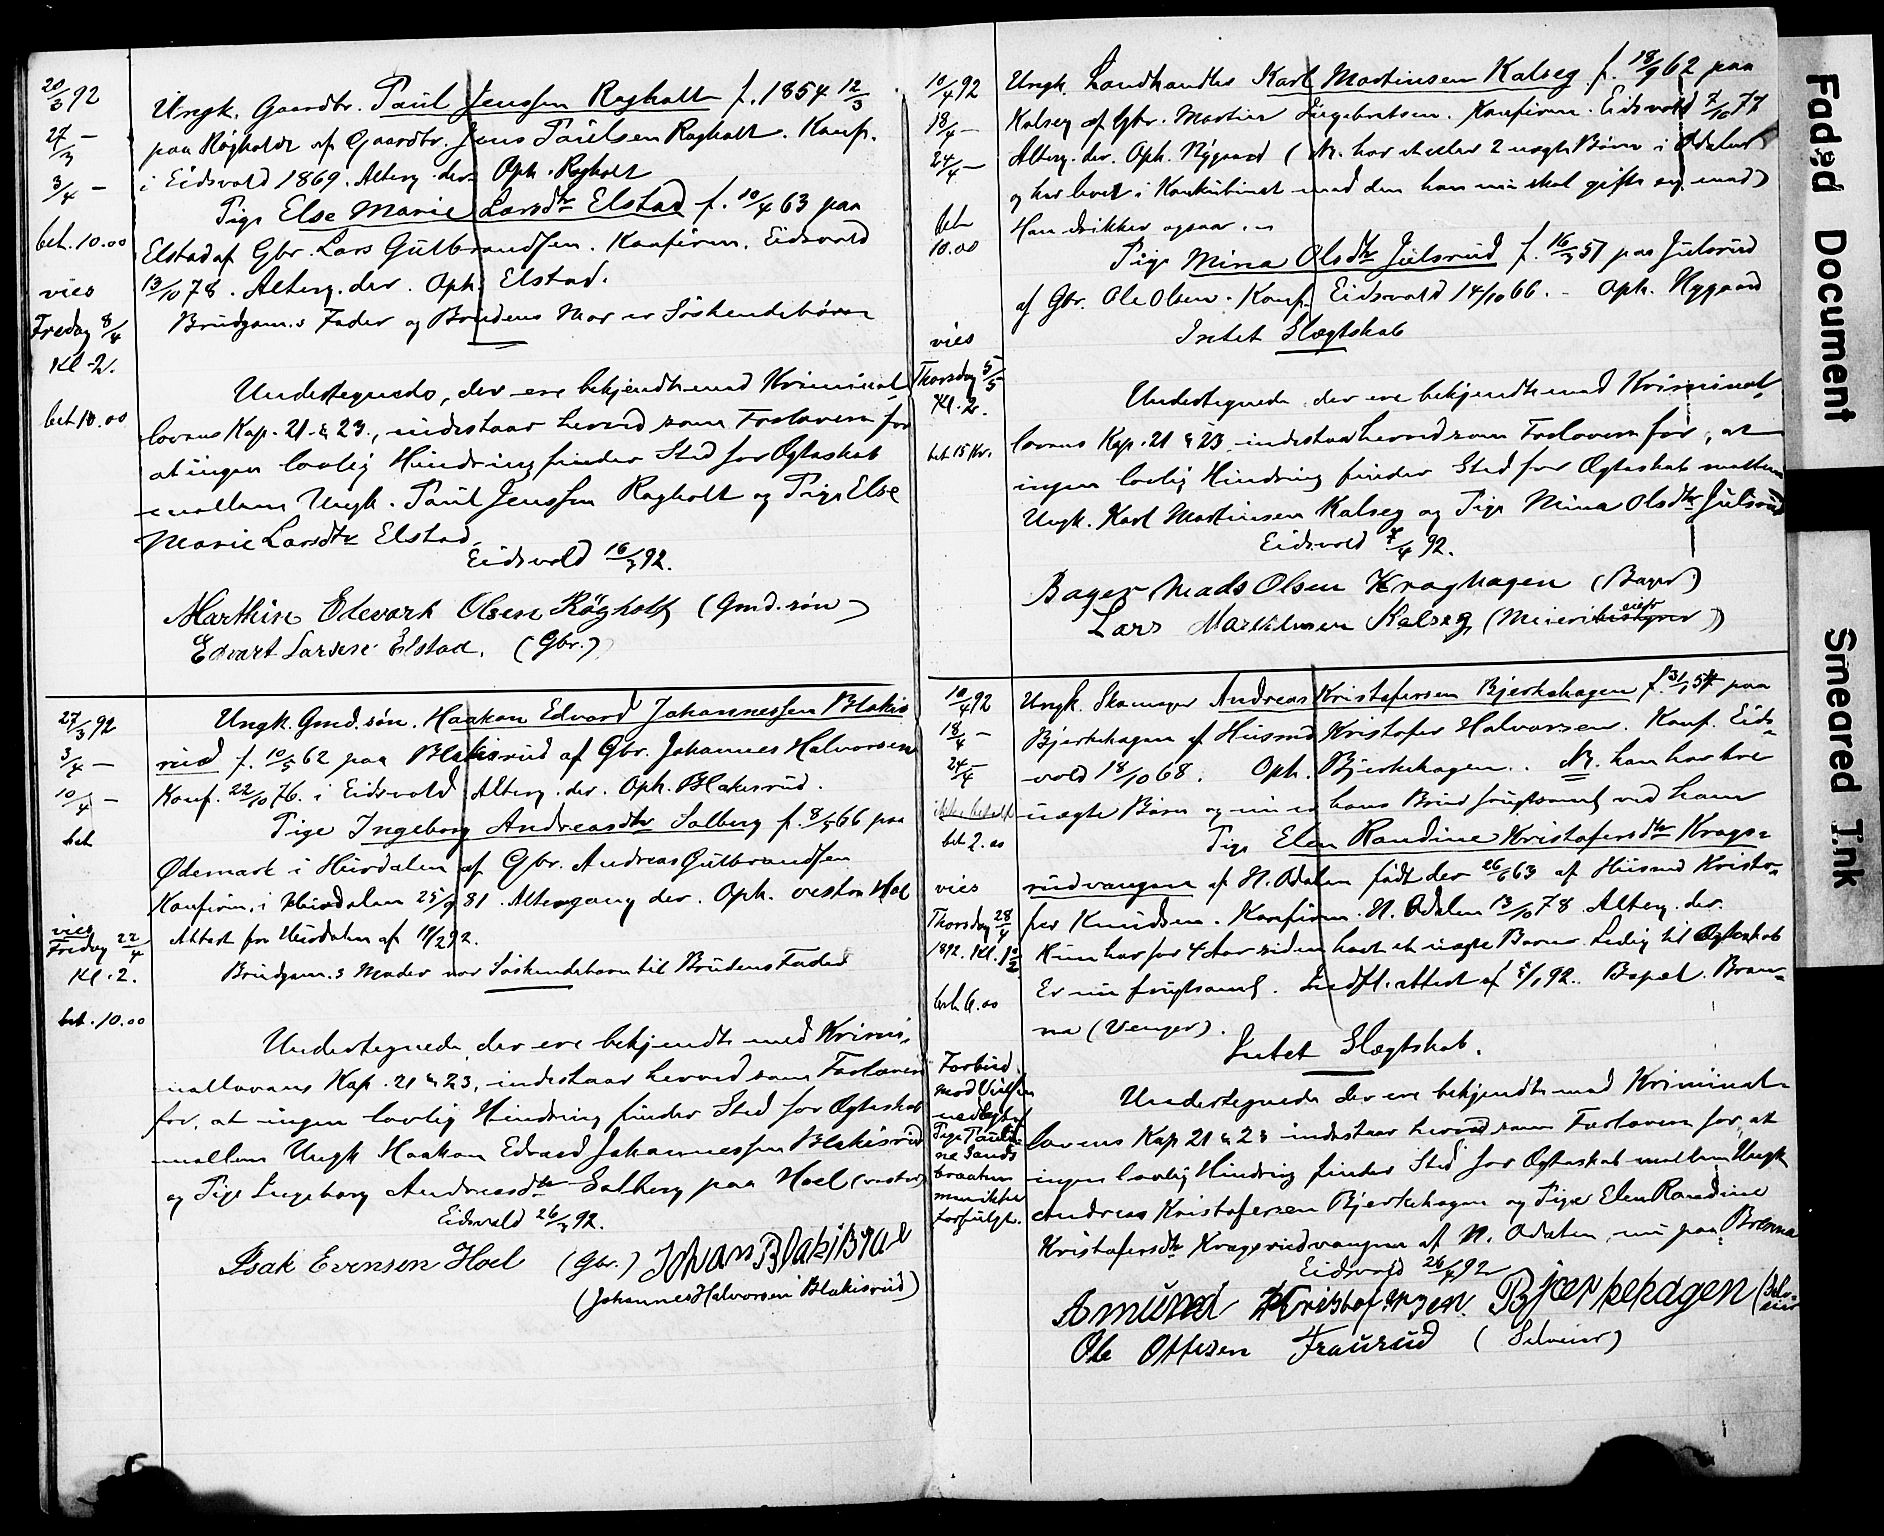 20/3 92
27/3 —
3/4 —
bet. 10.00
vies
Fredag 8/4
Kl. 2.
bet 10.00
Ungk. Gaardbr. Paul Jenssen Ragholt f. 1854 12/3
paa Røgholdt af Gaardbr. Jens Paulsen Ragholt. Konf.
i Eidsvold 1869. Alterg. der. Oph. Ragholt
Pige Else Marie Larsdtr Elstad f. 10/4 63 paa
Elstad af Gbr. Lars Gulbrandsen. Konfirm. Eidsvold
13/10 78. Alterg. der. Oph. Elstad.
Brudgom.s Fader og Brudens Mor er Søskendebørn
Undertegnede, der ere bekjendte med Kriminal-
lovens Kap. 21 & 23, indestaar herved som Forlovere for
at ingen lovlig Hindring finder Sted for Ægteskab
mellem Ungk. Paul Jenssen Ragholt og Pige Else
Marie Larsdtr Elstad.
Eidsvold 16/3 92.
Marthin Edevart Olsen Røgholt (Gmd. søn)
Edvart Larsen Elstad. (Gbr.)
27/3 92
3/4 —
10/4 —
bet
vies
Fredag 22/4
Kl. 2.
bet. 10.00
Ungk. Gmd. søn. Haakon Edvard Johannessen Blakis
rud f. 10/5 62 paa Blakisrud af Gbr. Johannes Halvorsen
Konf. 22/10 76. i Eidsvold Alterg. der. Oph. Blakisrud.
Pige Ingeborg Andreasdtr Solberg f. 8/5 66 paa
Ødemark i Hurdalen af Gbr. Andreas Gulbrandsen
Konfirm. i Hurdalen 25/9 81. Altergang der. Oph. vestre Hoel
Attest fra Hurdalen af 19/2 92.
Brudgom.s Moder var Søskendebarn til Brudens Fader
Undertegnede, der ere bekjendte med Krimi-
nallovens Kap. 21 & 23, indestaar herved som Forlovere
for, at ingen lovlig Hindring finder Sted for Ægteskab
mellem Ungk Haakon Edvard Johannessen Blakisrud
og Pige Ingeborg Andreasdtr Solberg paa Hoel (vestre)
Eidsvold 26/3 92.
Isak Evensen Hoel (Gbr.) Johans Blakisrud
(Johannes Halvorsen Blakisrud)
10/4 92
18/4 —
24/4 —
bet
10.00
vies
Thorsdag 5/5
Kl. 2.
bet 15 Kr.
Ungk. Landhandler Karl Martinsen Kalseg f. 18/9 62 paa
Kalseg af Gbr. Martin Engebretsen. Konfirm. Eidsvold 7/10 77
Alterg. der. Oph. Nygaard (N. har et eller 2 uægte Børn i Odalen
og har levet i Konkubinat med den han nu skal gifte sig med)
Han drikker ogsaa.
Pige Mina Olsdtr Julsrud f. 16/3 51 paa Julsrud
af Gbr. Ole Olsen. Konf. Eidsvold 14/10 66. – Oph. Nygaard
Intet Slægtskab
Undertegnede, der ere bekjendte med Kriminal-
lovens Kap. 21 & 23 indestaa herved som Forlovere for, at
ingen lovlig Hindring finder Sted for Ægteskab mellem
Ungk. Karl Martinsen Kalseg og Pige Mina Olsdtr Julsrud
Eidsvold 7/4 92.
Bager Mads Olsen Kraghagen (Bager)
Lars Martinsen Kalseg (Meieri
10/4 92
18/4 —
24/4 —
ikke betalt
bet 2.00
vies
Thorsdag 28/4
1892. Kl. 1 1/2
bet. 6.00
Forbud
mod Vielsen
nedlagt af
Pige Pauli-
ne Sands
braaten
men ikke
forfulgt.
Ungk. Skomager Andreas Kristofersen Bjerkehagen f. 31/1 54 paa
Bjerkehagen af Husmd Kristofer Halvorsen. Konf. Eids-
vold 18/10 68. Oph. Bjerkehagen. N. han har tre
uægte Børn og nu er hans Brud frugtsomlig ved ham
Pige Elen Randine Kristofersdtr Krags-
rudvangen af N. Odalen født der 26/ 63 af Husmd Kristo-
fer Knudsen. Konfirm. N. Odalen 13/10 78. Alterg. der.
Hun har for 4 Aar siden havt et uægte Barn. Ledig til Ægteskab
Er nu frugtsomlig. Indfl. attest af 5/1 92. Bopæl. Bræn-
na (Venger).
Intet Slægtskab.
Undertegnede der ere bekjendte med Kriminal-
lovens Kap 21 & 23 indestaar herved som Forlovere for, at
ingen lovlig Hindring finder Sted for Ægteskab mellem Ungk
Andreas Kristofersen Bjerkehagen og Pige Elen Randine
Kristofersdtr Kragsrudvangen af N. Odalen, nu paa Brænna
Eidsvold 26/4 92
Amund Kristofersen Bjerkehagen (Selv-
eier
Ole Ottesen Fraurud (Selveier)
Faded Document
Smeared Ink